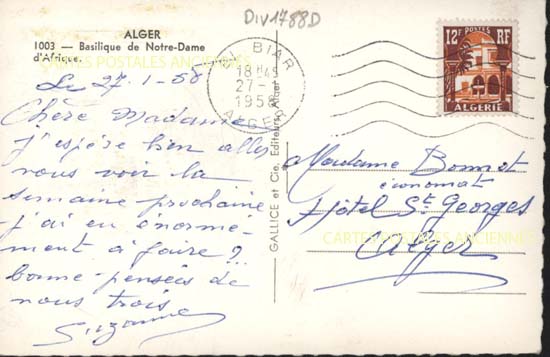 DIV1788D
ALGER
1003 — Basilique de Notre-Dame
d'Afrique.
CARTES POSTALES ANCIENNES
Le 27-1-58
Chère Madame
j'espère bien aller
nous voir la
semaine prochaine
j'ai eu énormé-
ment à faire ?
bonne pensées de
nous trois
Suzanne
GALLICE et Cie, Editeurs, Alger
EL BIAR
18H45
27-1
1958
ALGER
12F POSTES RF
ALGERIE
Madame Bonnot
économat
Hôtel St Georges
CARTES POSTALES ANCIENNES
Alger